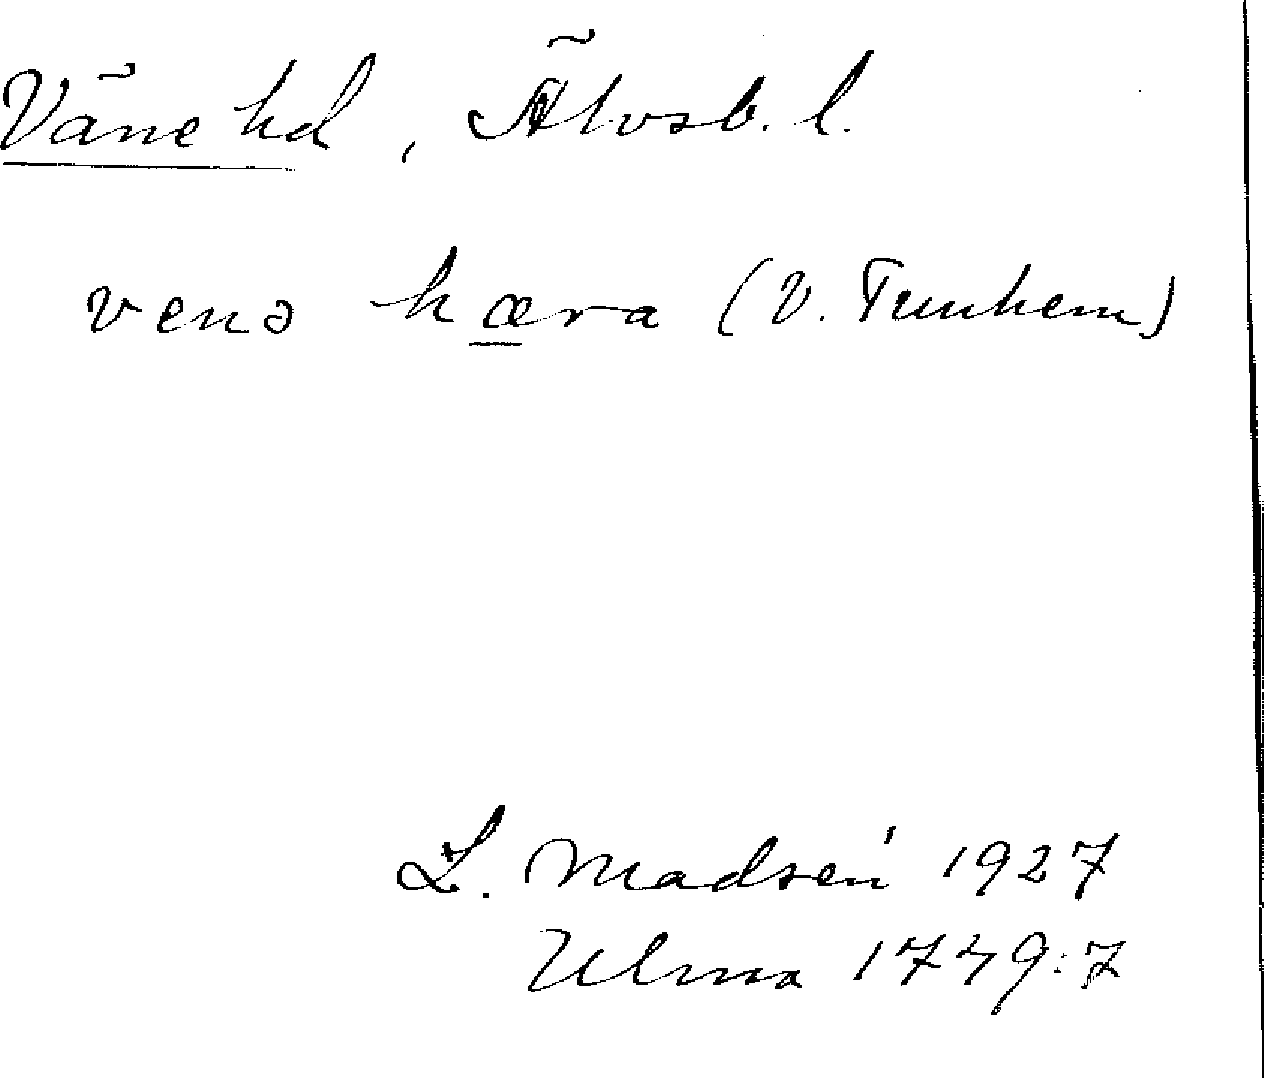 Väne hd, Älvsb. l.
venə hæra (V. Tunhem)
L. Madsén 1927
Ulma 1749:7